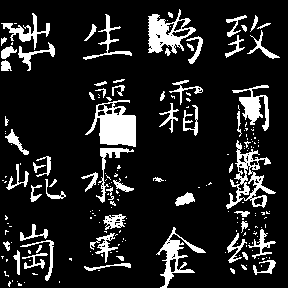 致雨露結
為霜金
生麗水玉
出崐崗